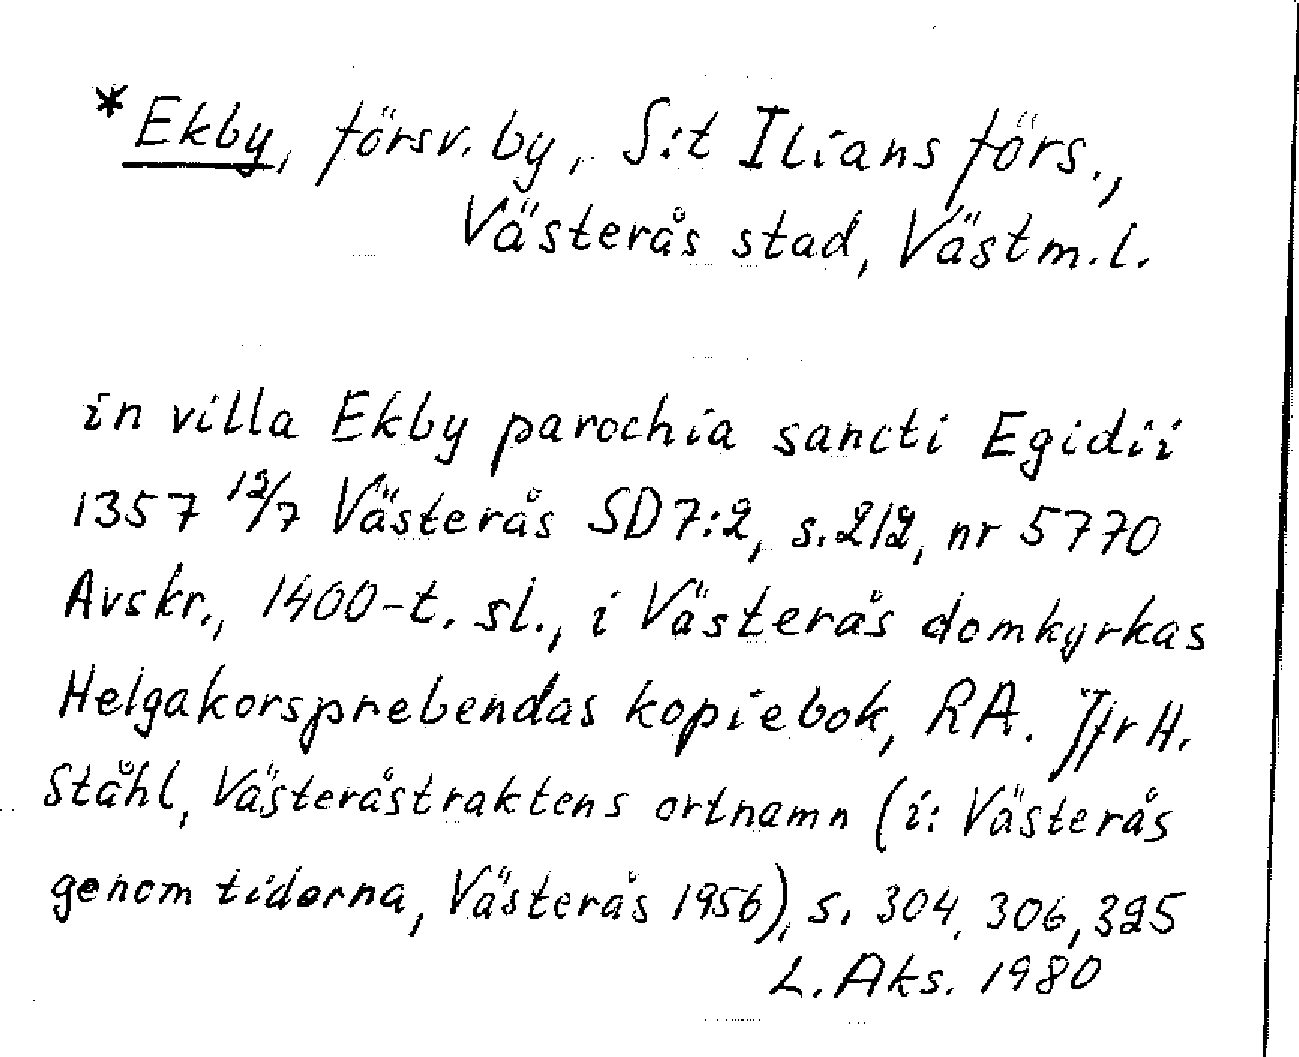 *Ekby, försv. by, S:t Ilians förs.,
Västerås stad, Västm.l.
in villa Ekby parochia sancti Egidii
1357 12/7 Västerås SD 7:2, s. 212, nr 5770
Avskr., 1400-t. sl., i Västerås domkyrkas
Helgakorsprebendas kopiebok, RA. Jfr H.
Ståhl, Västeråstraktens ortnamn (i: Västerås
genom tiderna, Västerås 1956), s. 304, 306, 325
L. Aks. 1980